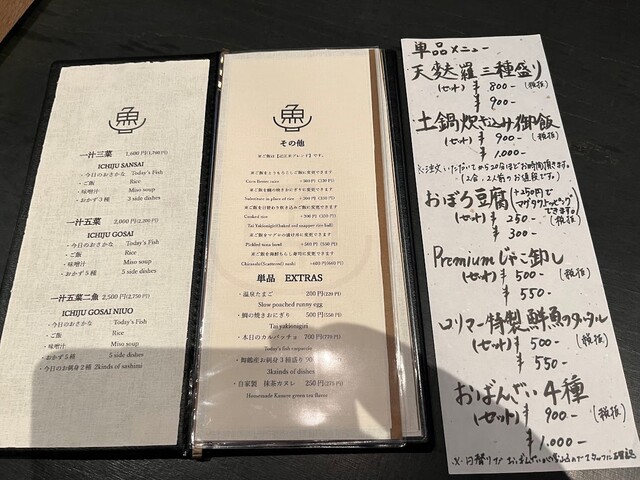 魚
一汁三菜 1,600円(1,760円)
ICHIJU SANSAI
・今日のおさかな Today's Fish
・ご飯 Rice
・味噌汁 Miso soup
・おかず3種 3 side dishes
一汁五菜 2,000円(2,200円)
ICHIJU GOSAI
・今日のおさかな Today's Fish
・ご飯 Rice
・味噌汁 Miso soup
・おかず5種 5 side dishes
一汁五菜二魚 2,500円(2,750円)
ICHIJU GOSAI NIUO
・今日のおさかな Today's Fish
・ご飯 Rice
・味噌汁 Miso soup
・おかず5種 5 side dishes
・今日のお刺身2種 2kinds of sashimi
魚
その他
Substitute in place of rice
Cooked rice
単品 EXTRAS
・温泉たまご 200円(220円)
Slow poached runny egg
・鯛の焼きおにぎり 500円(550円)
Tai yakionigiri
・本日のカルパッチョ 700円(770円)
Today's fish carpaccio
3kinds of dishes
・自家製 抹茶カヌレ 250円(275円)
Homemade Kanure green tea flavor
単品メニュー
天麩羅三種盛り
(セット) ¥800- (税抜)
¥900-
土鍋炊き込み御飯
(セット) ¥900- (税抜)
¥1,000-
※注文いただいてから20分ほどお時間頂きます。
おぼろ豆腐 (+250円で
(セット) ¥250- (税抜)
¥300-
Premiumじゃこ卸し
(セット) ¥500- (税抜)
¥550-
ロリマー特製鮮魚のタルタル
(セット) ¥500- (税抜)
¥550-
おばんざい4種
(セット) ¥900- (税抜)
¥1,000-